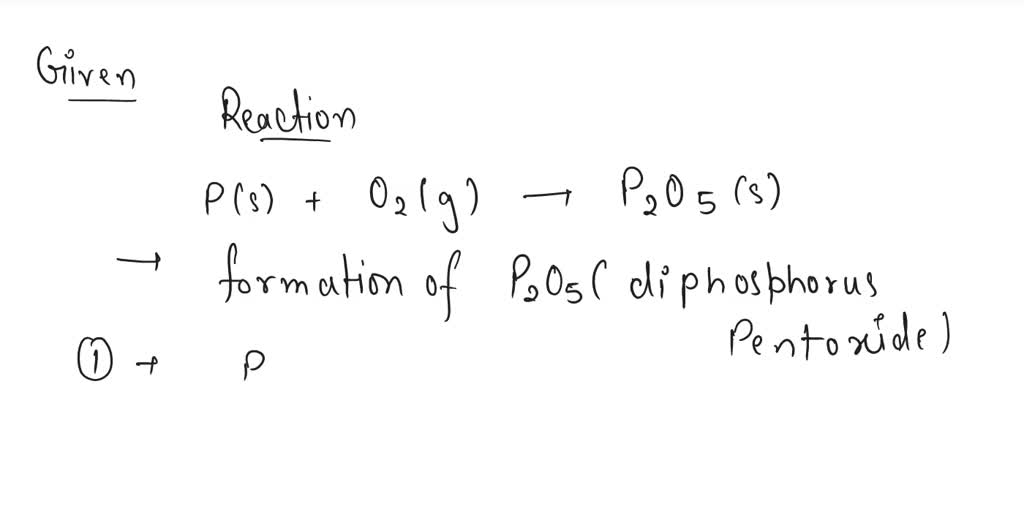 Given
Reaction
P(s) + O₂(g) → P₂O₅(s)
→ formation of P₂O₅( diphosphorus
Pentoxide)
① → P